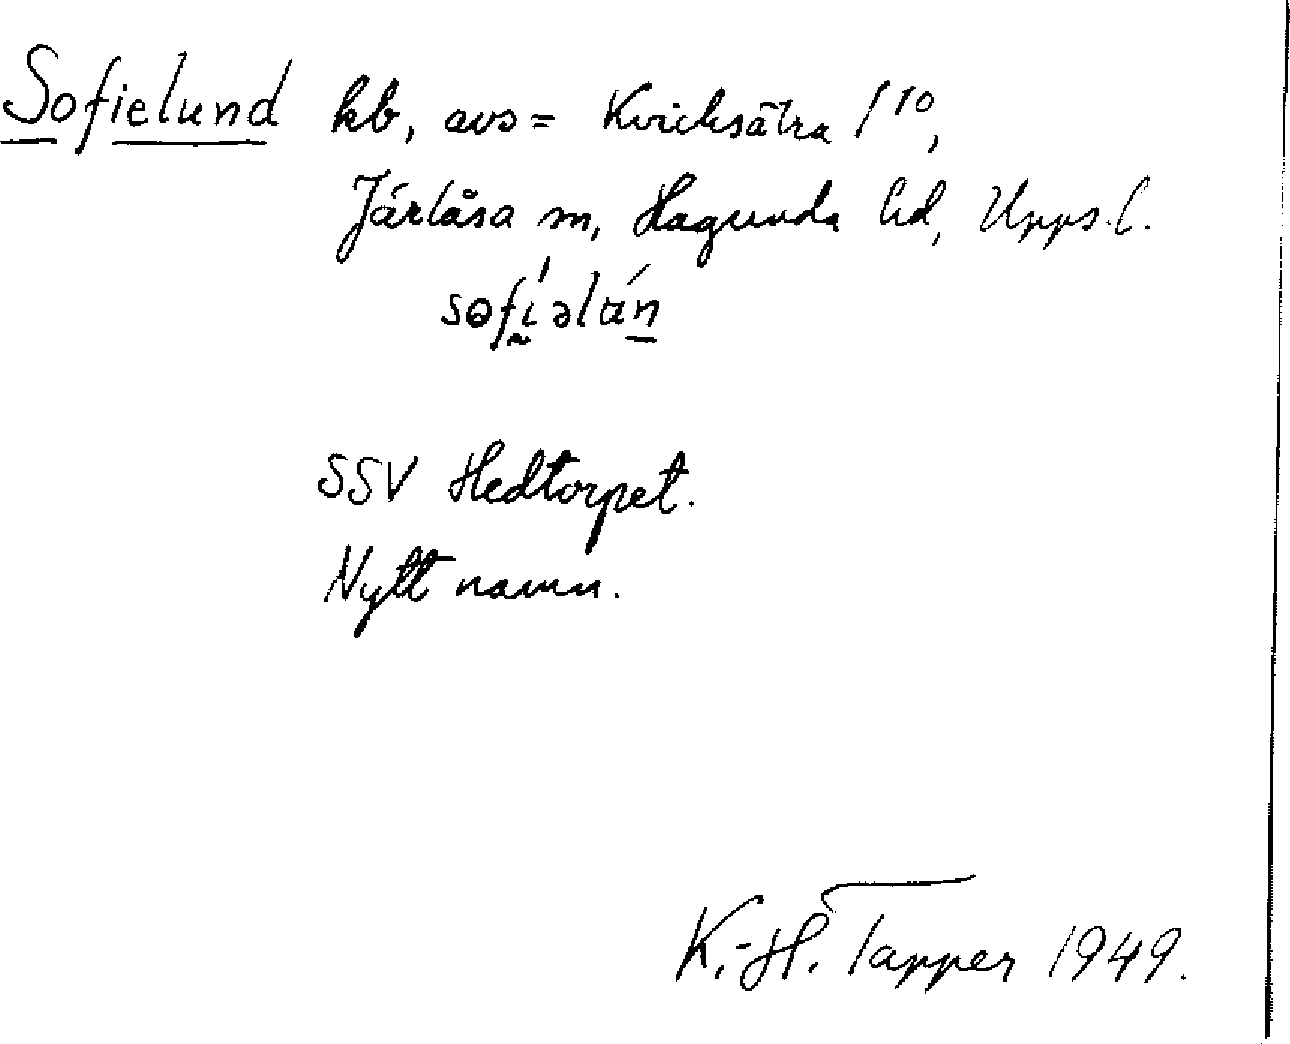 Sofielund kb, avs = Kvicksätra 1¹⁰,
Järlåsa sn, Hagunda hd, Upps. l.
SSV Hedtorpet.
Nytt namn.
K.-H. Tapper 1949.